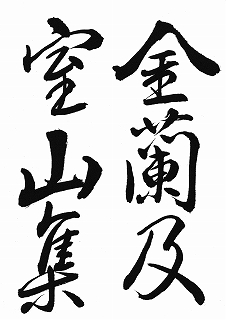 金蘭及
室山集